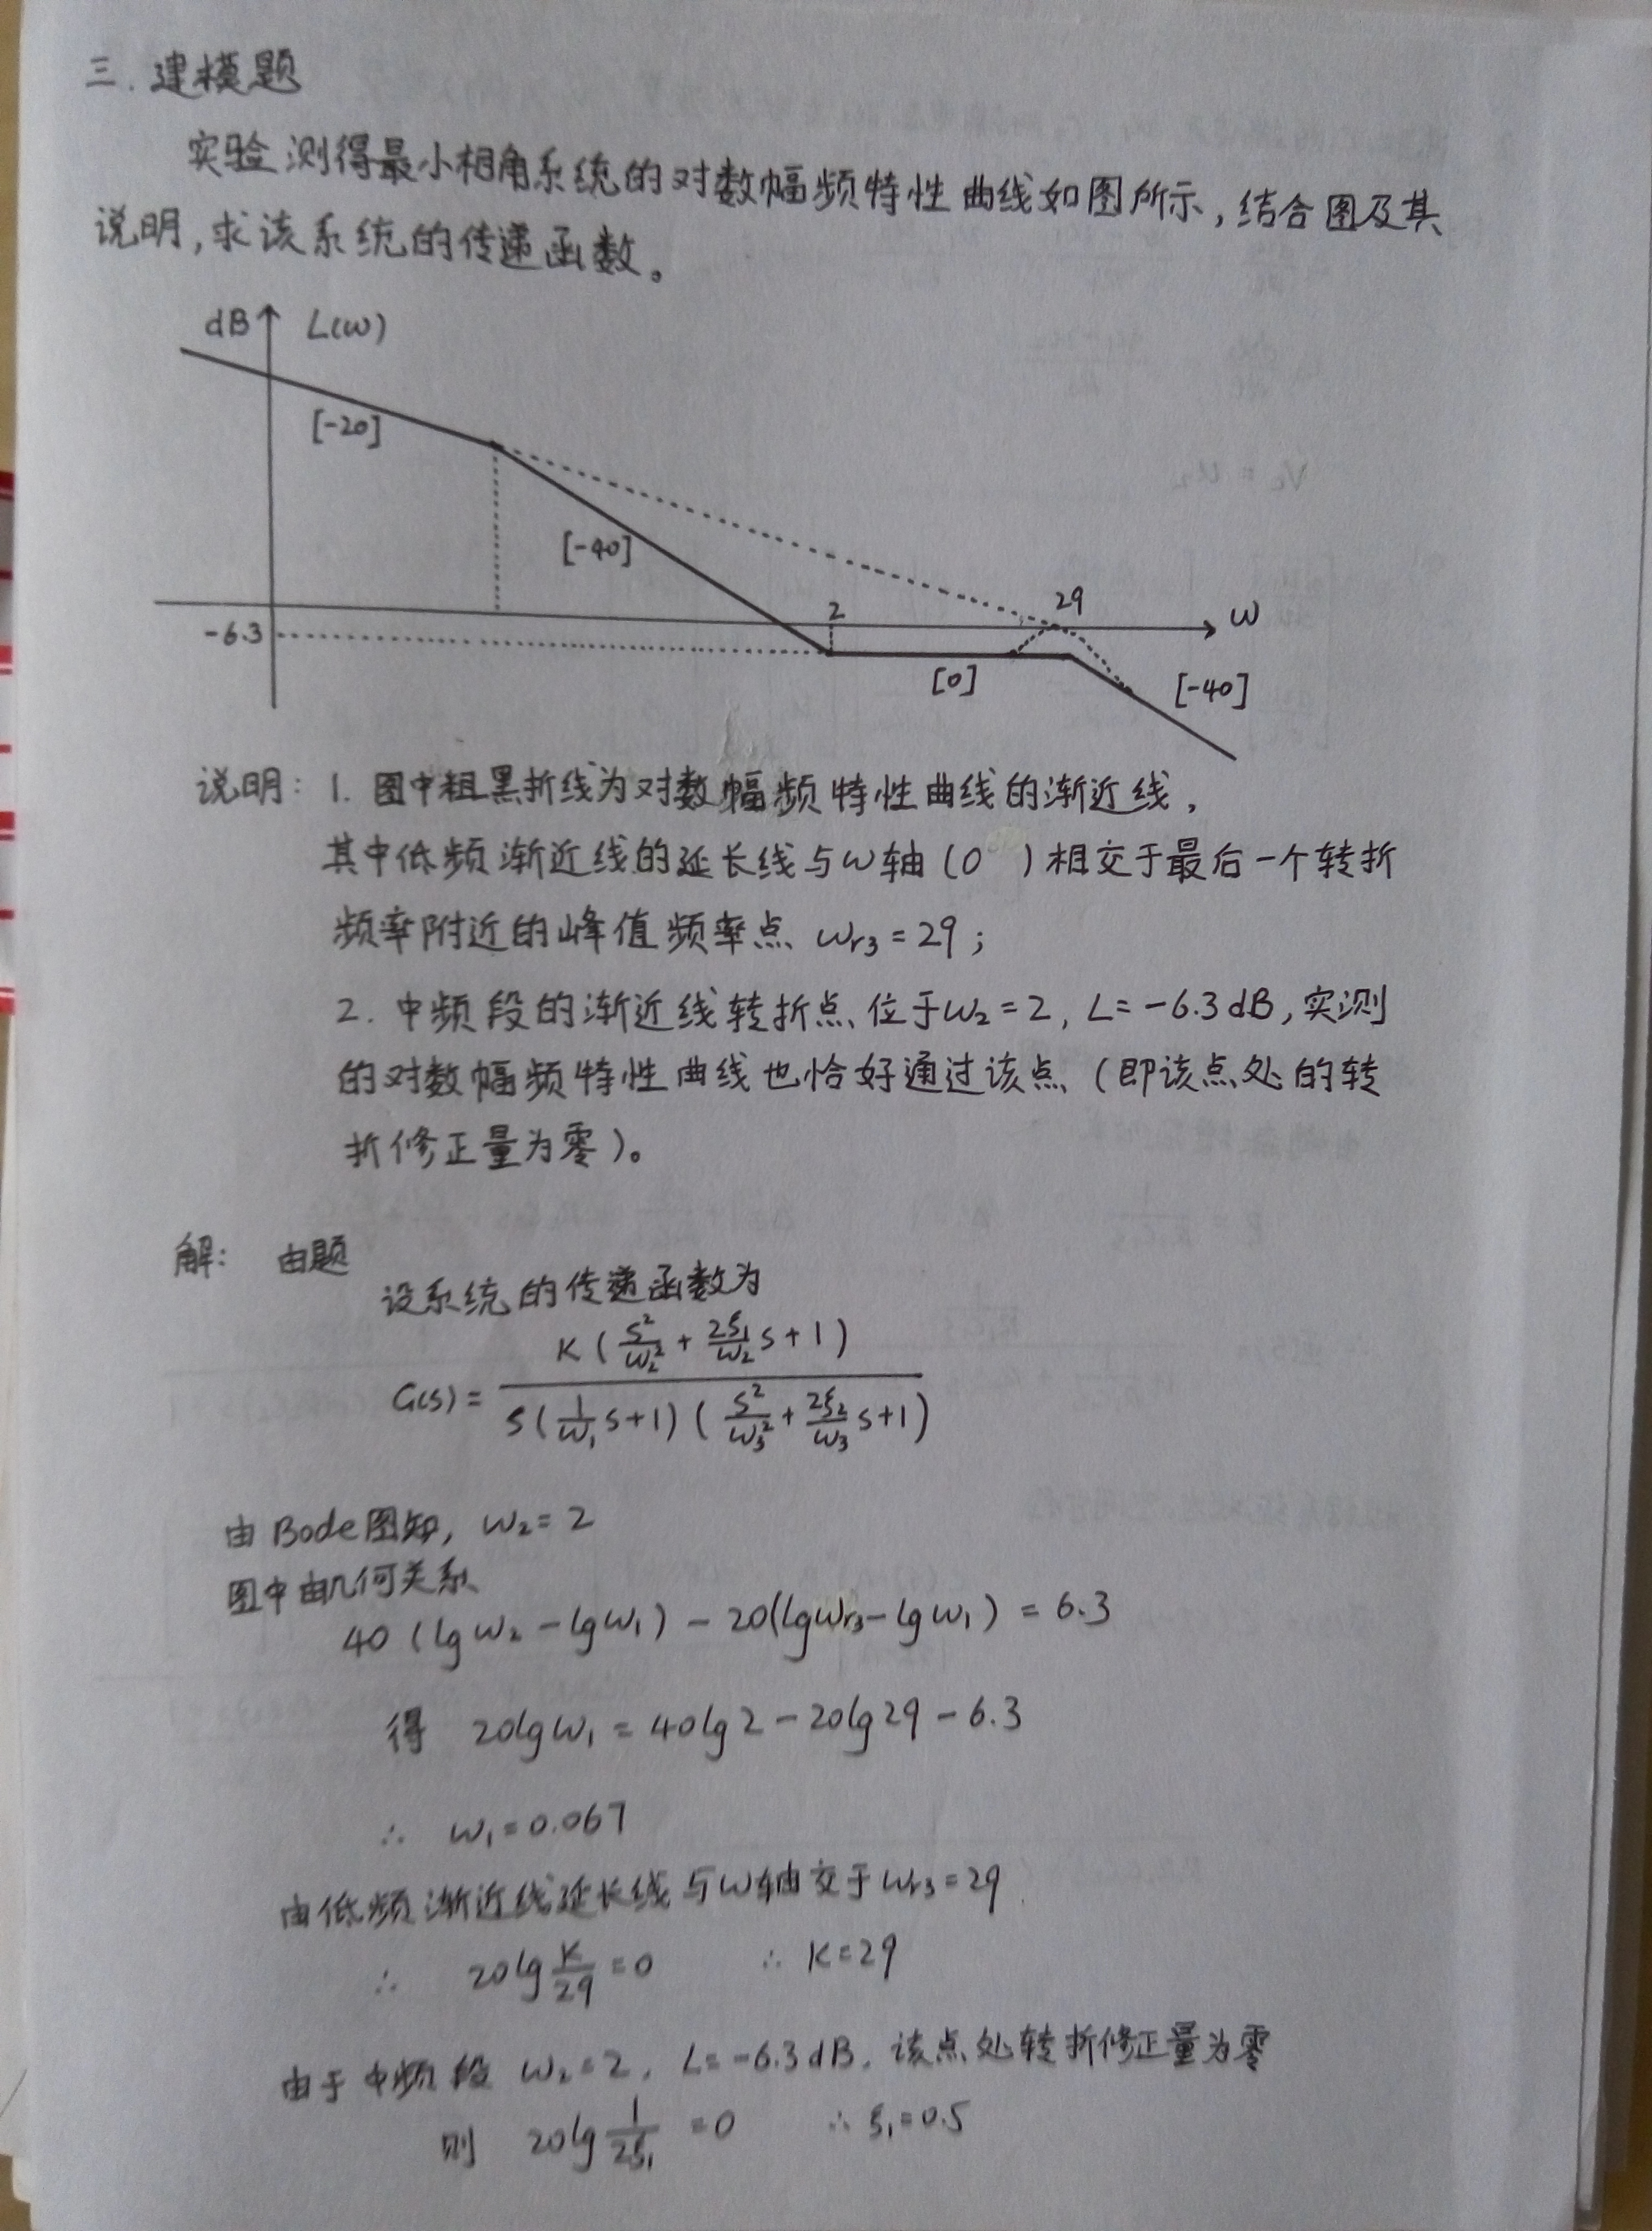 三. 建模题
实验测得最小相角系统的对数幅频特性曲线如图所示, 结合图及其
说明, 求该系统的传递函数。
dB L(ω)
[-20]
[-40]
2
29
ω
-6.3
[0]
[-40]
说明: 1. 图中粗黑折线为对数幅频特性曲线的渐近线,
其中低频渐近线的延长线与ω轴(0 )相交于最后一个转折
频率附近的峰值频率点 ωr3 = 29;
2. 中频段的渐近线转折点位于ω2 = 2, L = -6.3 dB, 实测
的对数幅频特性曲线也恰好通过该点 (即该点处的转
折修正量为零)。
解: 由题
设系统的传递函数为
G(s) = K(s²/ω2² + 2ξ1/ω2 s + 1) / s(1/ω1 s + 1)(s²/ω3² + 2ξ2/ω3 s + 1)
由 Bode图知, ω2 = 2
图中由几何关系
40 (lgω2 - lgω1) - 20(lgωr3 - lgω1) = 6.3
得 20lgω1 = 40lg2 - 20lg29 - 6.3
∴ ω1 = 0.067
由低频渐近线延长线与ω轴交于ωr3 = 29
∴ 20lg K/29 = 0 ∴ K = 29
由于中频段 ω2 = 2, L = -6.3 dB, 该点处转折修正量为零
则 20lg 1/2ξ1 = 0 ∴ ξ1 = 0.5